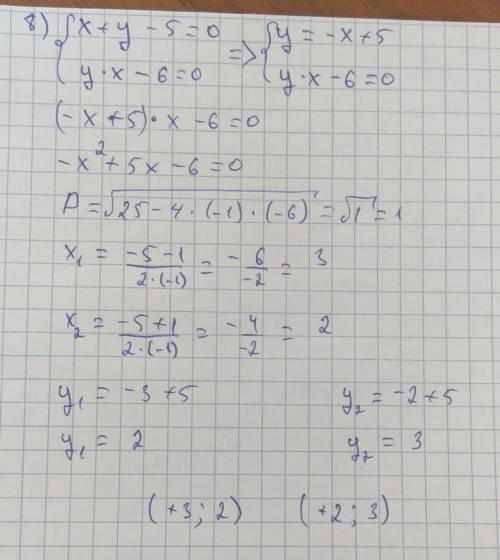 8) { x + y - 5 = 0 => { y = -x + 5
y · x - 6 = 0 y · x - 6 = 0
(-x + 5) · x - 6 = 0
-x² + 5x - 6 = 0
D = √25 - 4 · (-1) · (-6) = √1 = 1
x₁ = -5 - 1 / 2·(-1) = - 6 / -2 = 3
x₂ = -5 + 1 / 2·(-1) = - 4 / -2 = 2
y₁ = -3 + 5 y₂ = -2 + 5
y₁ = 2 y₂ = 3
(+3; 2) (+2; 3)